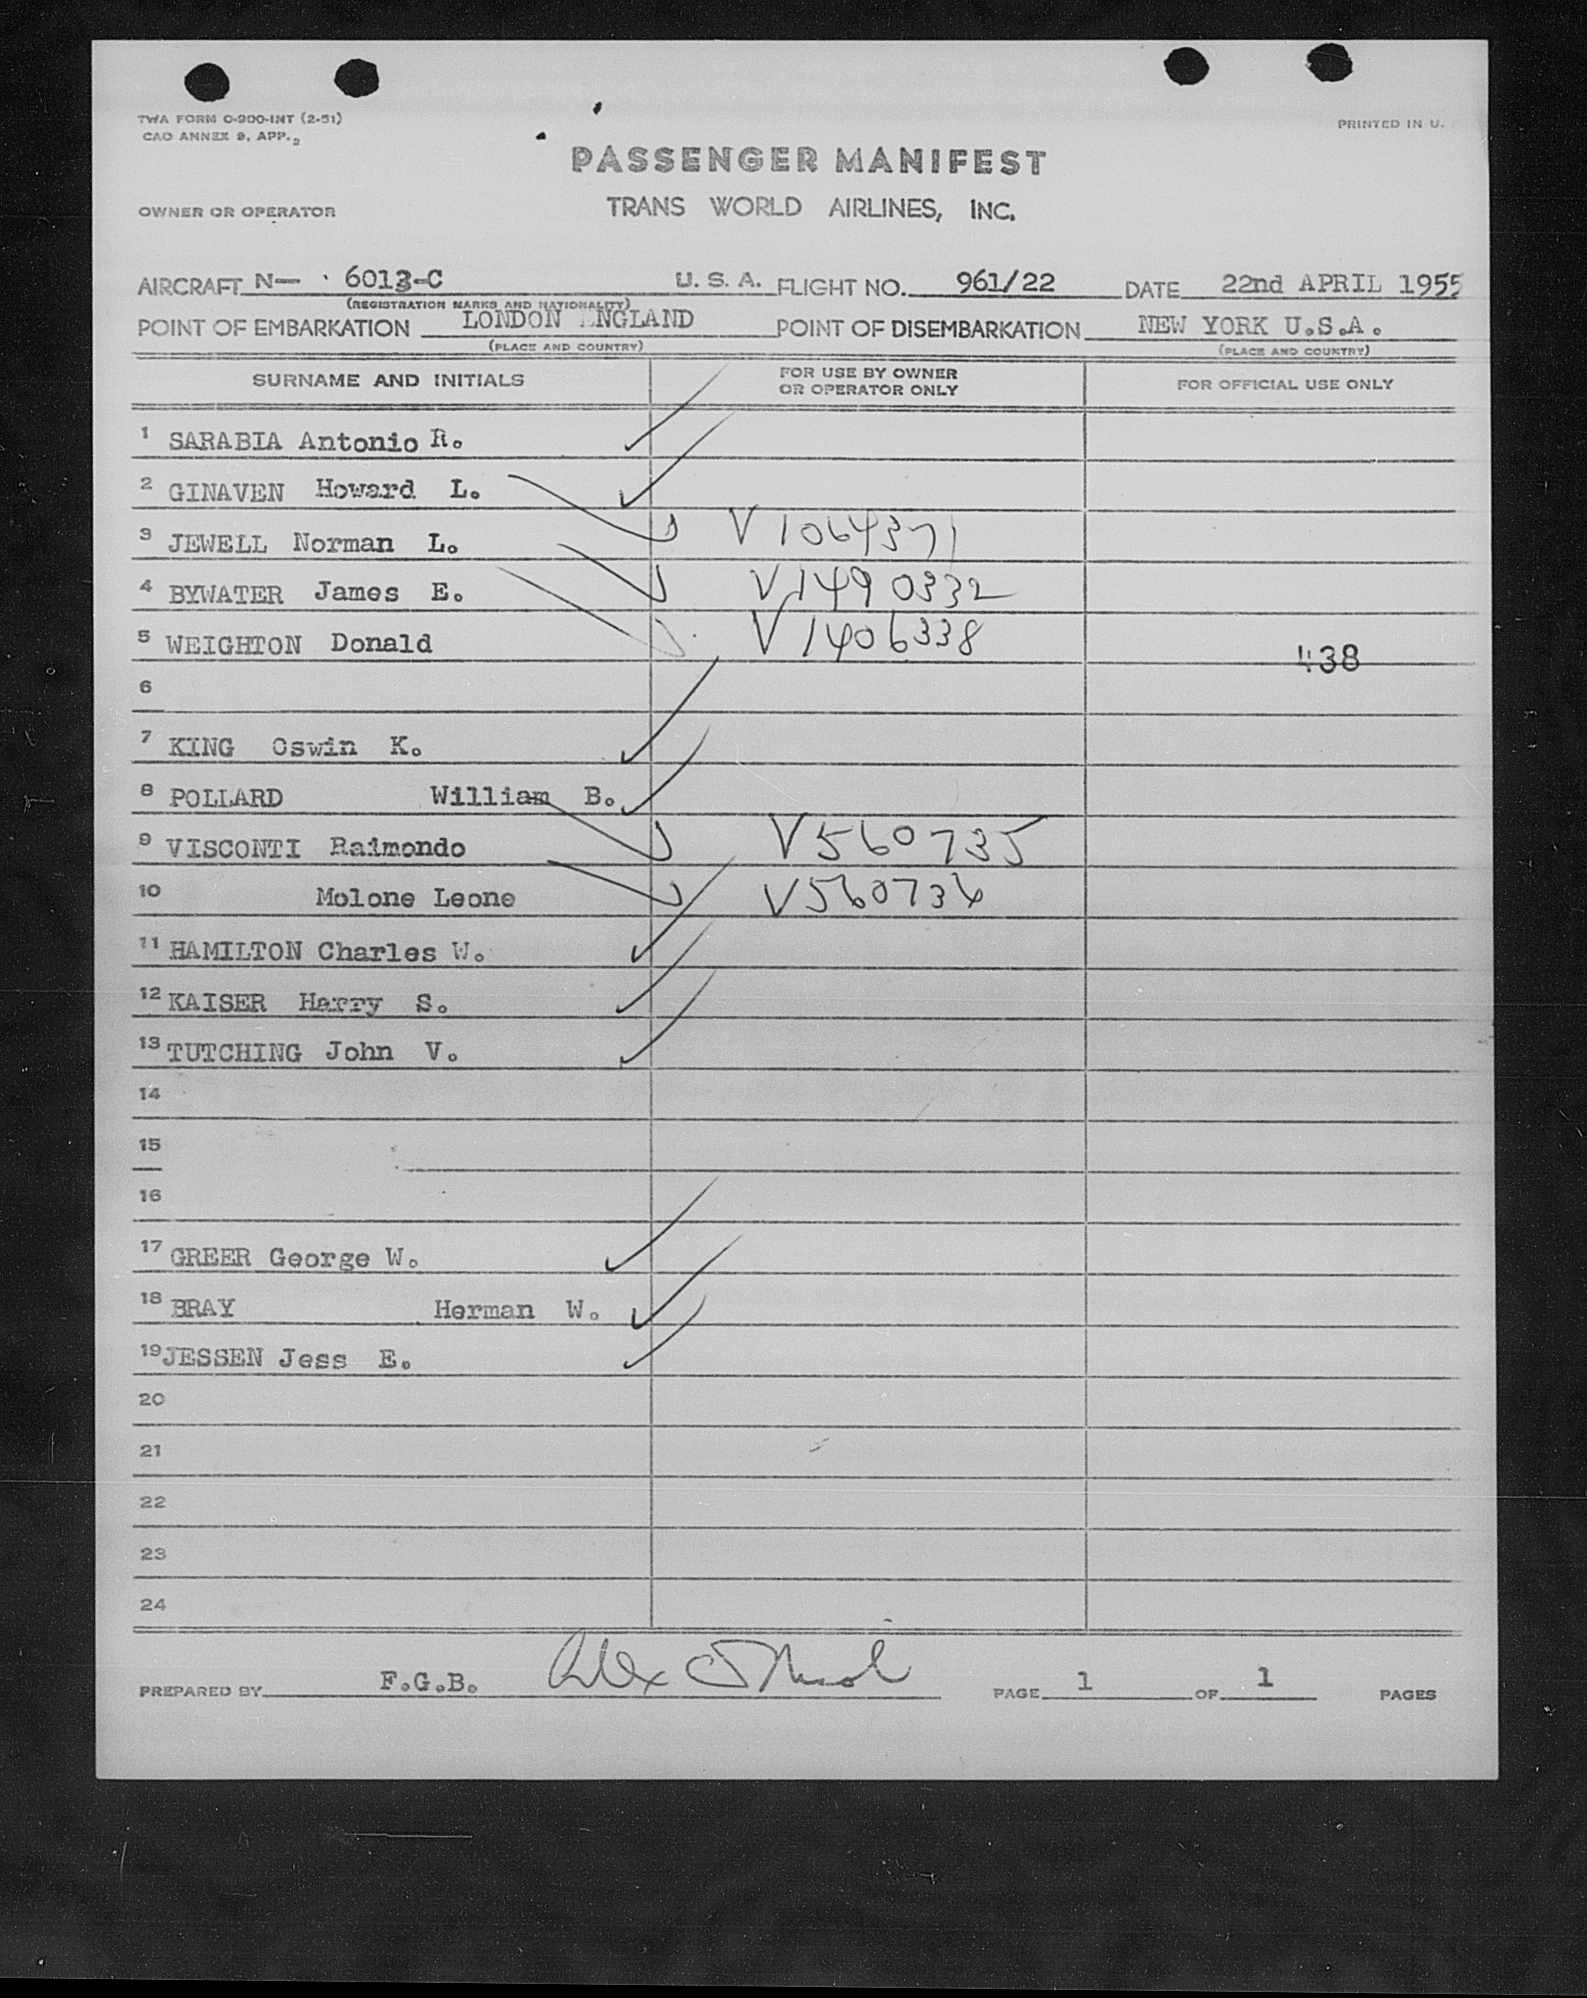 TWA FORM O-900-INT (2-51)
CAO ANNEX 9, APP. 2
PRINTED IN U.
PASSENGER MANIFEST
OWNER OR OPERATOR TRANS WORLD AIRLINES, INC.
AIRCRAFT N— 6013-C U. S. A. FLIGHT NO. 961/22 DATE 22nd APRIL 1955
(REGISTRATION MARKS AND NATIONALITY)
POINT OF EMBARKATION LONDON ENGLAND POINT OF DISEMBARKATION NEW YORK U.S.A.
(PLACE AND COUNTRY) (PLACE AND COUNTRY)
SURNAME AND INITIALS FOR USE BY OWNER OR OPERATOR ONLY FOR OFFICIAL USE ONLY
1 SARABIA Antonio R.
2 GINAVEN Howard L.
3 JEWELL Norman L. V1064371
4 BYWATER James E. V1490332
5 WEIGHTON Donald V1406338 438
6
7 KING Oswin K.
8 POLLARD William B.
9 VISCONTI Raimondo V560735
10 Molone Leone V560736
11 HAMILTON Charles W.
12 KAISER Harry S.
13 TUTCHING John V.
14
15
16
17 GREER George W.
18 BRAY Herman W.
19 JESSEN Jess E.
20
21
22
23
24
PREPARED BY F.G.B. Alex PAGE 1 OF 1 PAGES